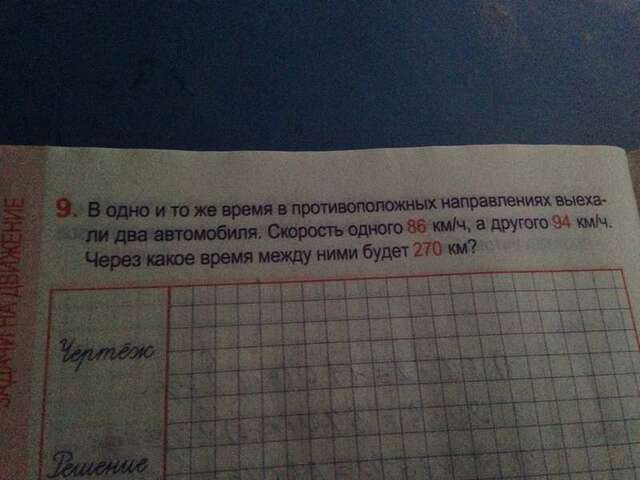 ЗАДАЧИ НА ДВИЖЕНИЕ
9. В одно и то же время в противоположных направлениях выеха-
ли два автомобиля. Скорость одного 86 км/ч, а другого 94 км/ч.
Через какое время между ними будет 270 км?
Чертёж
Решение